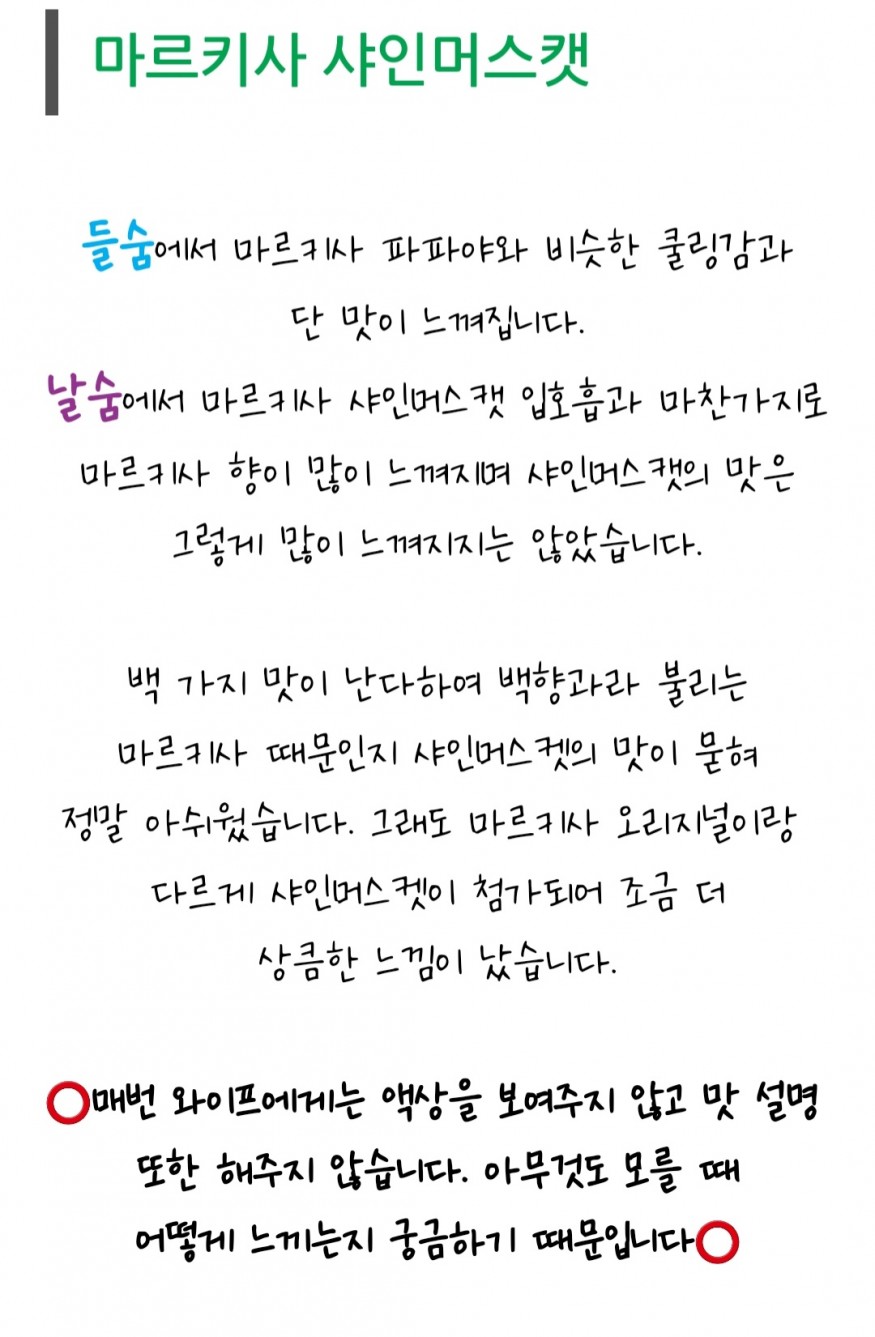 마르키사 샤인머스캣
들숨에서 마르키사 파파야와 비슷한 쿨링감과
단 맛이 느껴집니다.
날숨에서 마르키사 샤인머스캣 입호흡과 마찬가지로
마르키사 향이 많이 느껴지며 샤인머스캣의 맛은
그렇게 많이 느껴지지는 않았습니다.
백 가지 맛이 난다하여 백향과라 불리는
마르키사 때문인지 샤인머스켓의 맛이 묻혀
정말 아쉬웠습니다. 그래도 마르키사 오리지널이랑
다르게 샤인머스켓이 첨가되어 조금 더
상큼한 느낌이 났습니다.
⭕매번 와이프에게는 액상을 보여주지 않고 맛 설명
또한 해주지 않습니다. 아무것도 모를 때
어떻게 느끼는지 궁금하기 때문입니다⭕